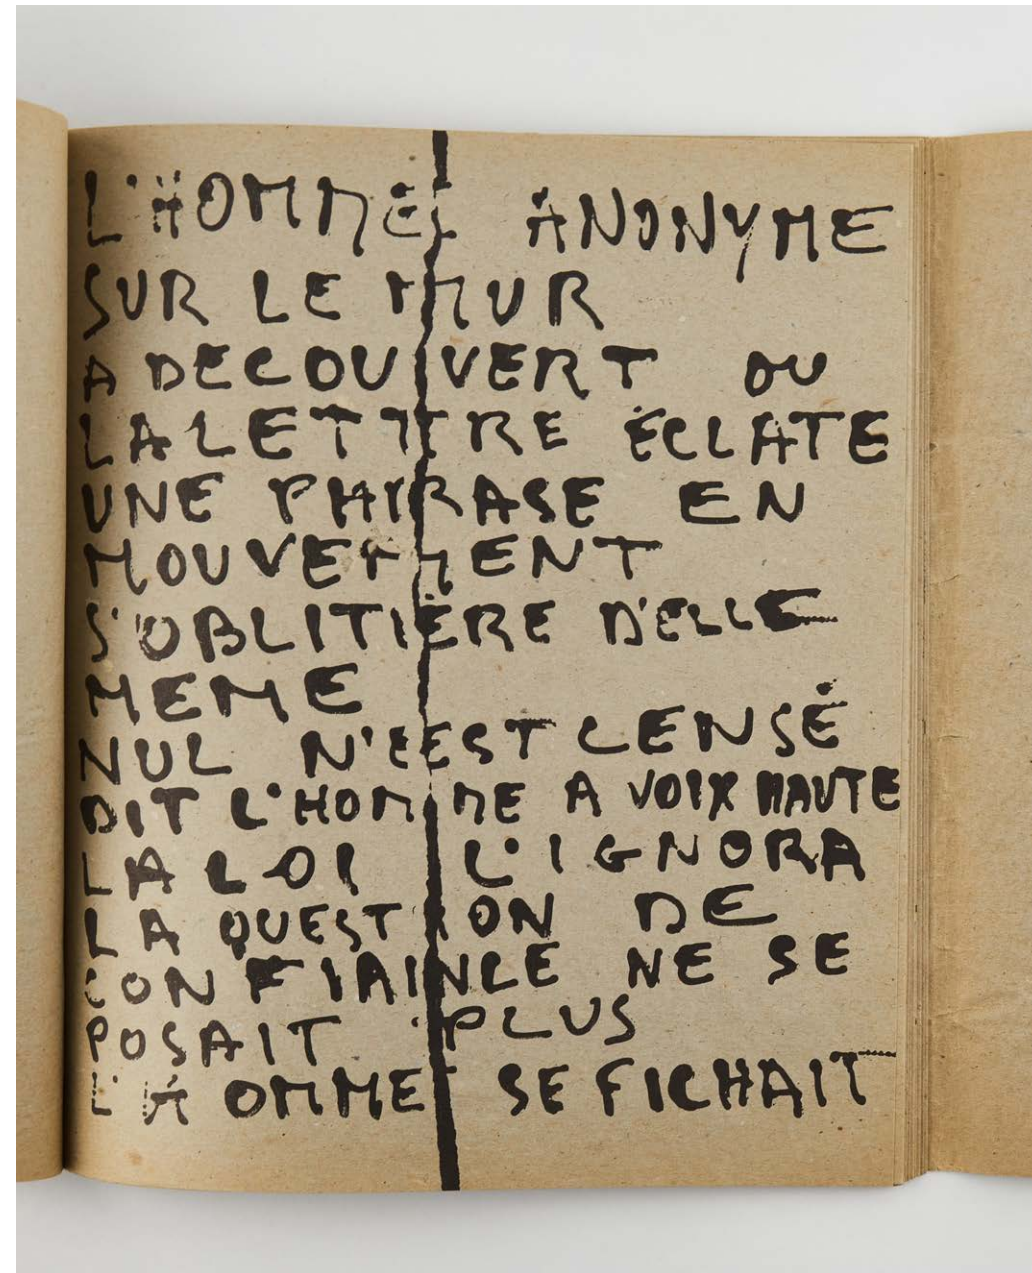 L'HOMME ANONYME
SUR LE MUR
A DECOUVERT OU
LA LETTRE ÉCLATE
UNE PHRASE EN
MOUVEMENT
S'OBLITÈRE D'ELLE
MEME
NUL N'EST CENSÉ
DIT L'HOMME A VOIX HAUTE
LA LOI L'IGNORA
LA QUESTION DE
CONFIANCE NE SE
POSAIT PLUS
L'HOMME SE FICHAIT